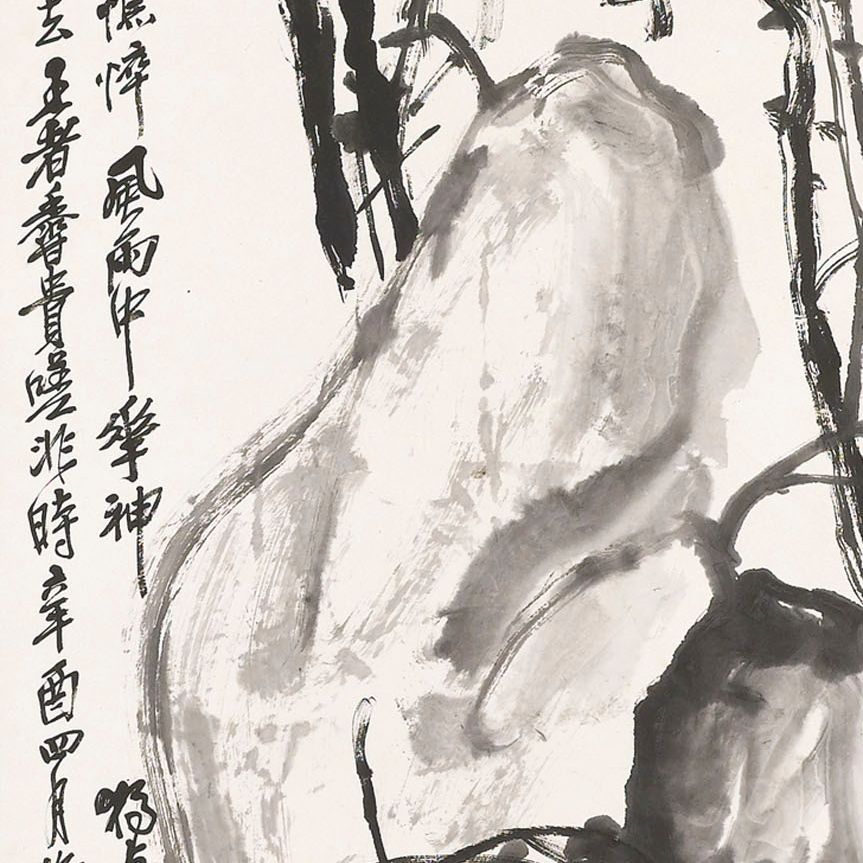 憔悴風雨中華神
去王者香貴嗟非時辛酉四月